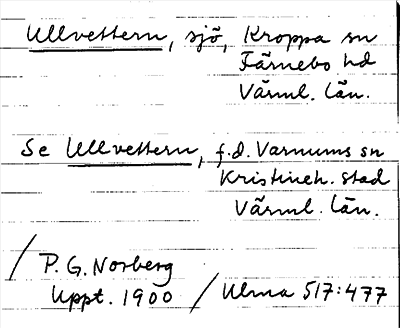 Ullvettern, sjö, Kroppa sn
Färnebo hd
Värml. län.
Se Ullvettern, f.d. Varnums sn
Kristineh. stad
Värml. län.
/ P. G. Norberg
Uppt. 1900 / Ulma 517:477